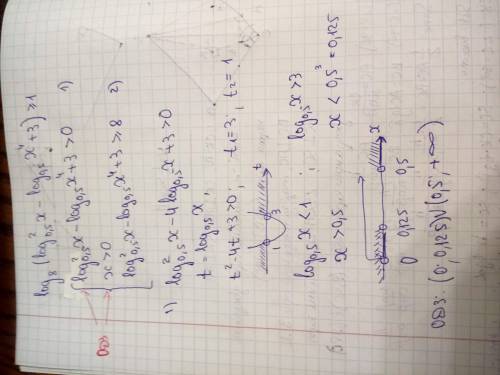 log₈(log²₀,₅x - log₀,₅x⁴+3) ≥1
log²₀,₅x - log₀,₅x⁴+3 >0 1)
x>0
log²₀,₅x - log₀,₅x⁴+3 ≥ 8 2)
ОДЗ
1) log²₀,₅x - 4 log₀,₅x+3 >0
t = log₀,₅x,
t²-4t+3>0; t₁=3, t₂=1
1 3 t
log₀,₅x <1; log₀,₅x >3
x >0,5 x < 0,5³ = 0,125
0 0,125 0,5 x
ОДЗ: (0; 0,125)∪(0,5; +∞)